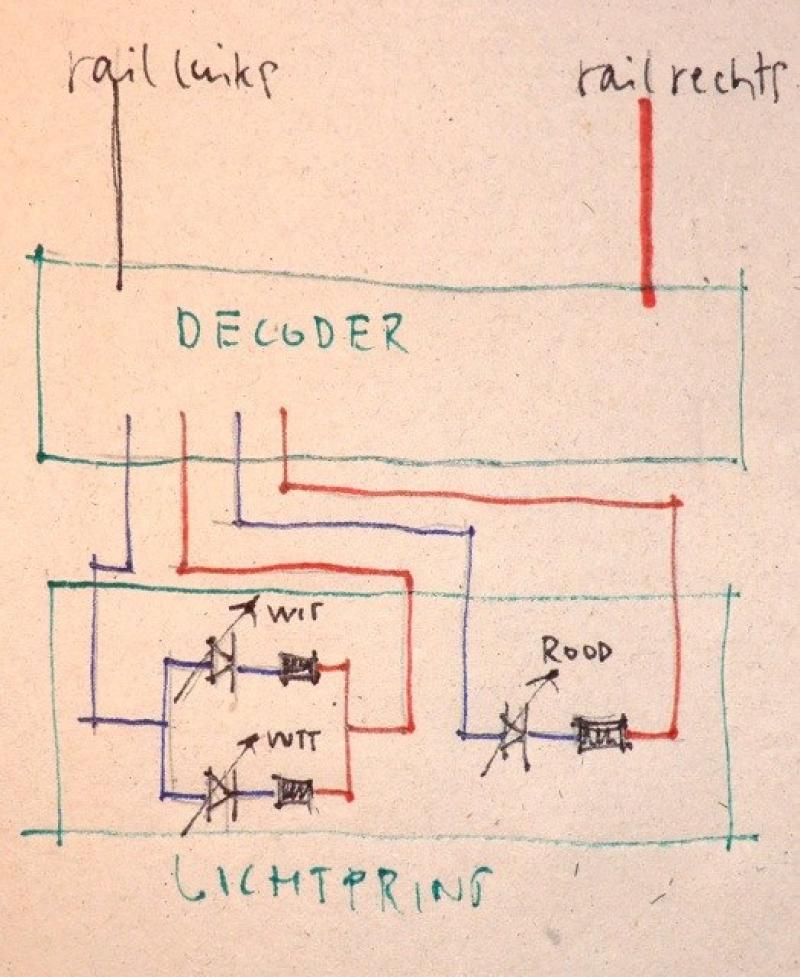 rail links
rail rechts
DECODER
WIT
ROOD
WIT
LICHTPRINT